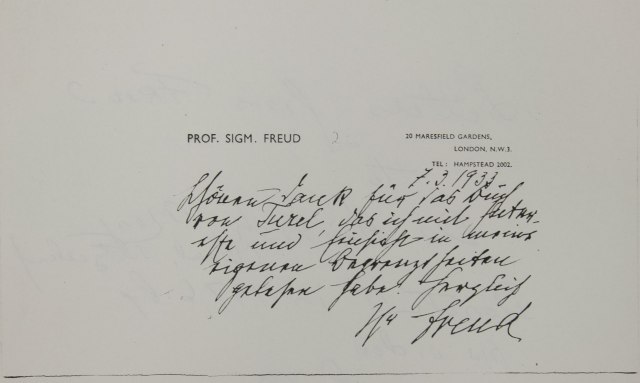 PROF. SIGM. FREUD
20 MARESFIELD GARDENS,
LONDON, N.W.3.
TEL: HAMPSTEAD 2002.
7.3.1933
Schönen Dank für das Buch
von Turel, das ich mit Inter-
esse und in meine
eigenen Begrenztheiten
gelesen habe. Herzlich
Ihr Freud